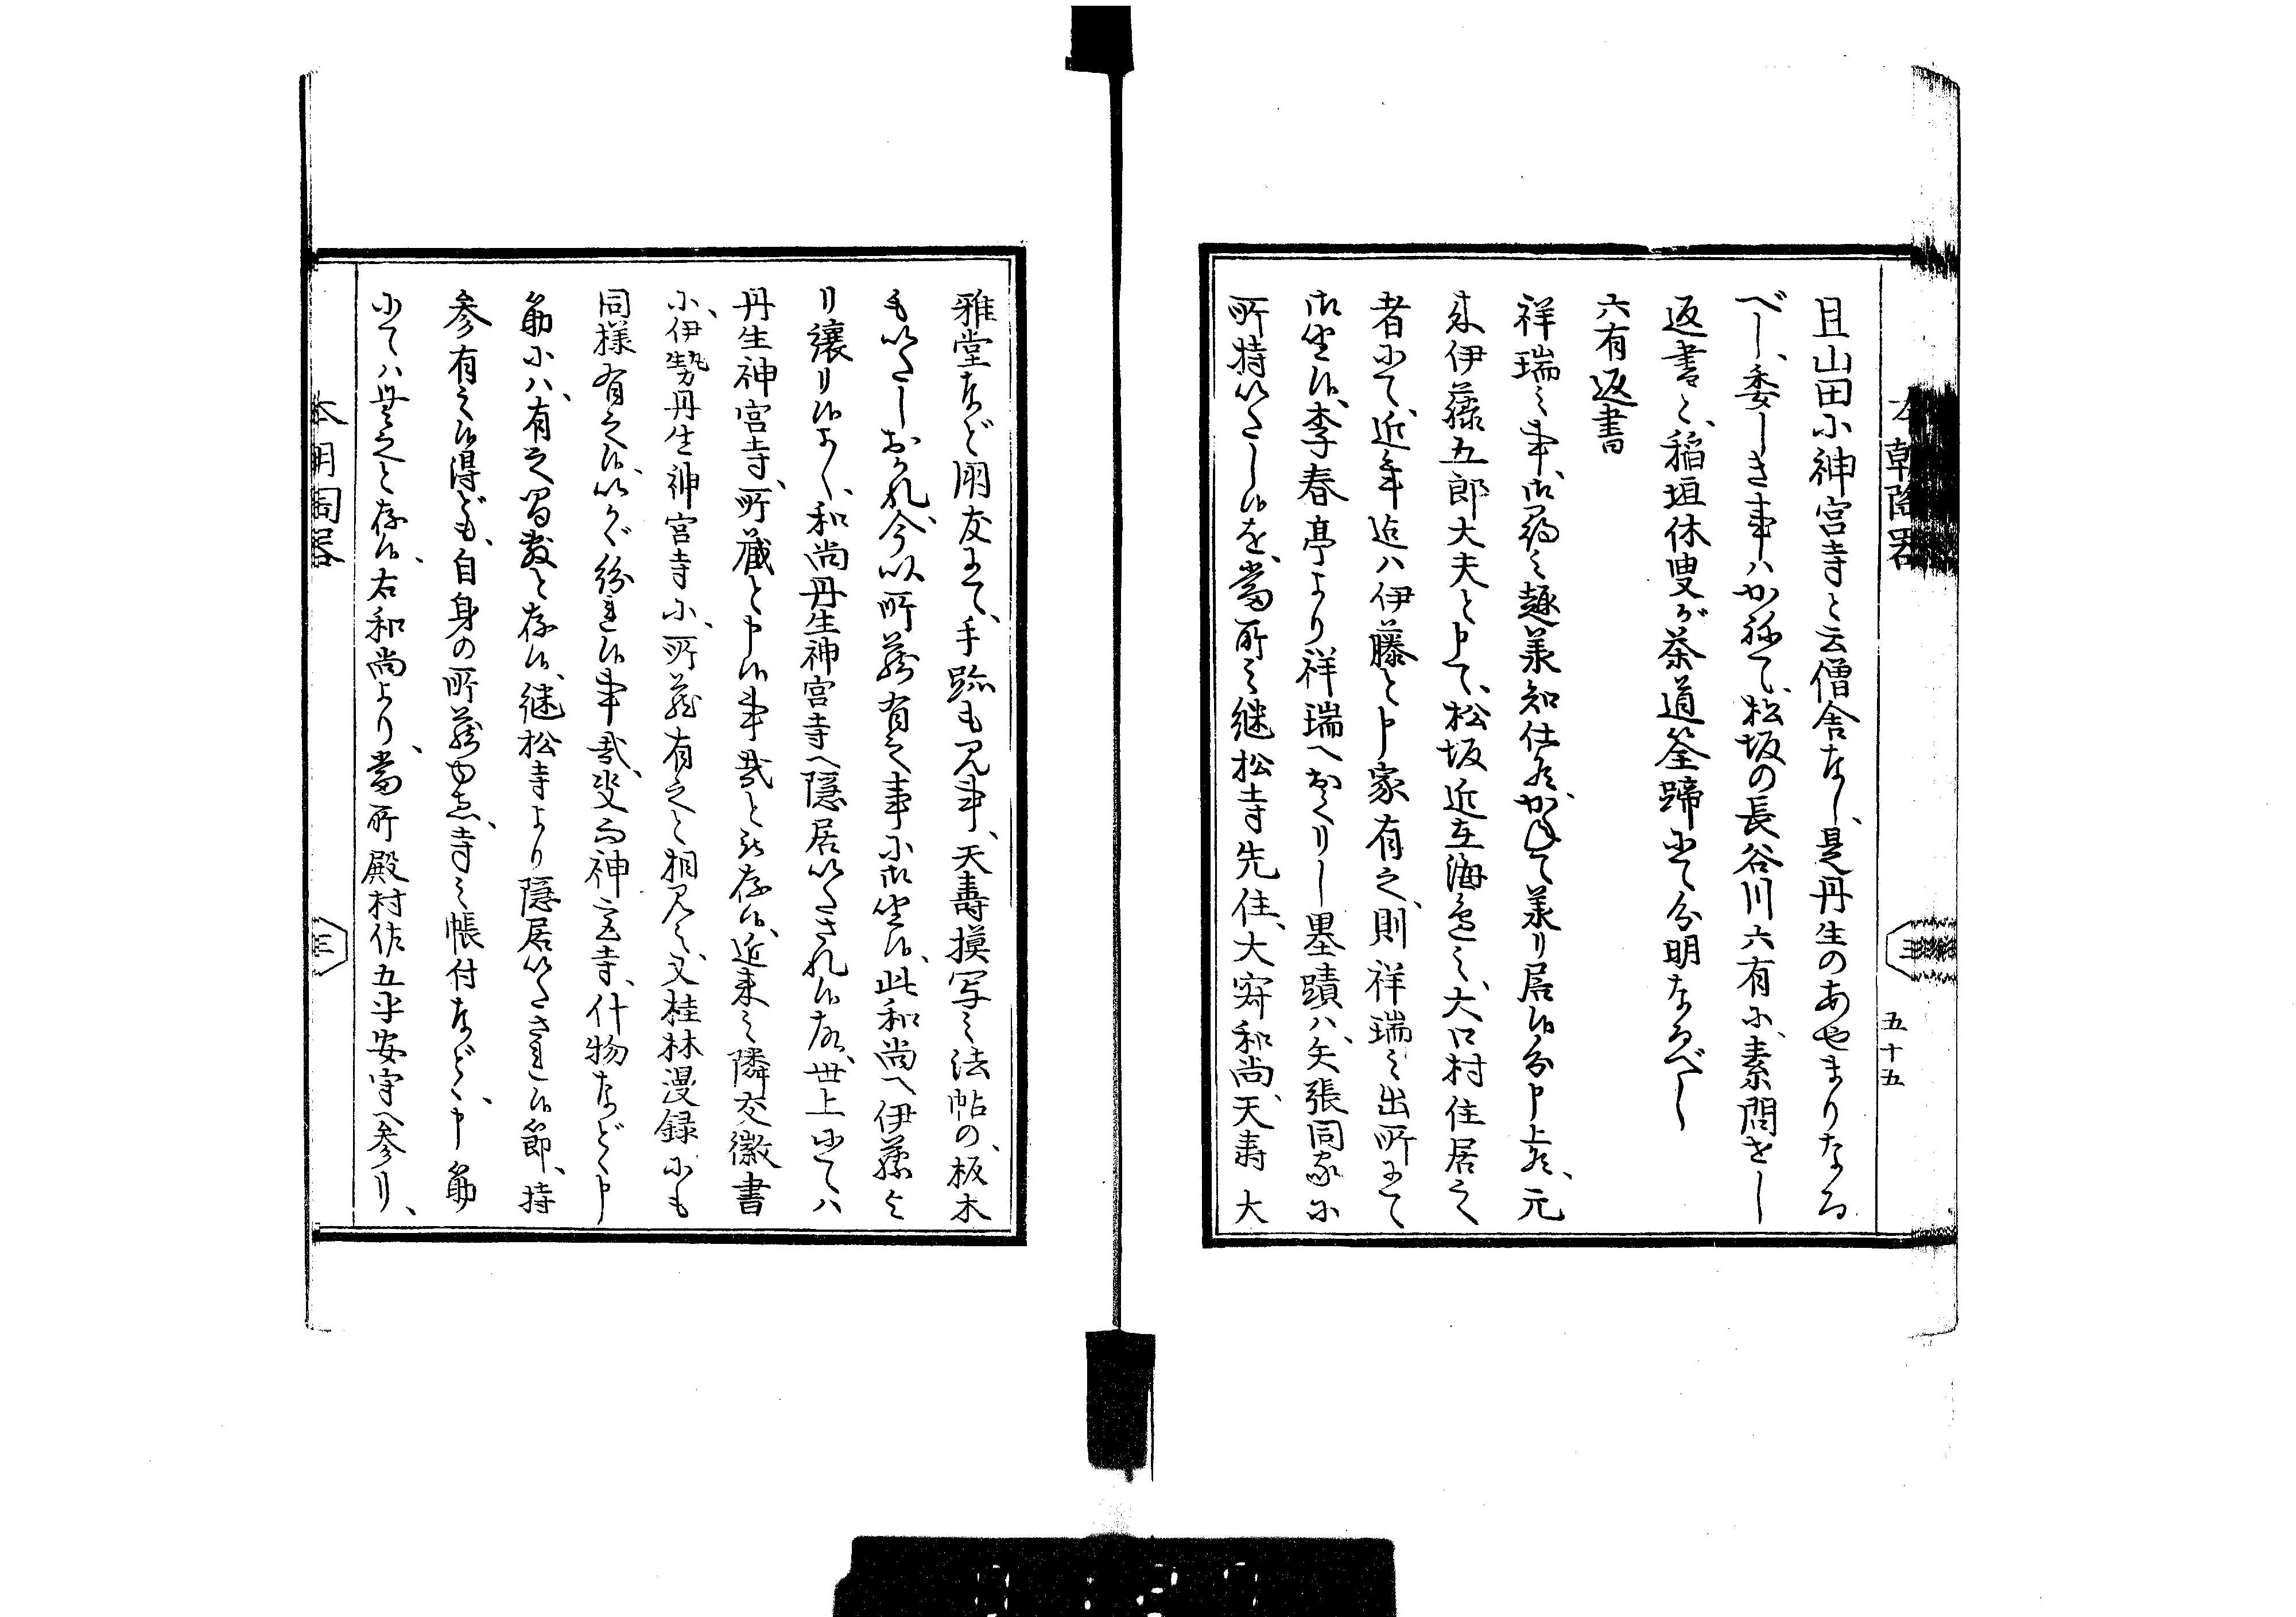 本朝陶器
三
五十五
且山田に神宮寺と云僧舎なし、是丹生のあやまりなる
べし、委しき事ハかねて、松坂の長谷川六有に、素問せし
返書と、稲垣休叟が茶道筌蹄にて分明なるべし
六有返書
祥瑞之事、御尋之趣羕知仕候、かねて羕り居候分申上候、元
来伊藤五郎大夫と申て、松坂近在海邉之、大口村住居之
者にて、近年迄ハ伊藤と申家有之、則祥瑞之出所にて
御坐候、李春亭より祥瑞へおくりし墨蹟ハ、矢張同家に
所持いたし候を、當所之継松寺先住、大寀和尚、天壽 大
雅堂など朋友にて、手跡も見事、天壽摸写之法帖の、板木
もいたしおかれ、今以所蔵有之事に御坐候、此和尚へ伊藤よ
り譲り候よし、和尚丹生神宮寺へ隠居いたされ候故、世上にてハ
丹生神宮寺、所蔵と申候事哉と被存候、近来之隣交徴書
に、伊勢丹生神宮寺に、所蔵有之と相見え、又桂林漫録にも
同様有之候、いかが紛れ候事哉、燓而神宮寺、什物など申
筋にハ、有之間敷と存候、継松寺より隠居いたされ候節、持
参有之候得ども、自身の所蔵ゆゑ、寺之帳付など、申筋
にてハ無之と存候、右和尚より、當所殿村佐五平安守へ参り、
本朝陶器
三